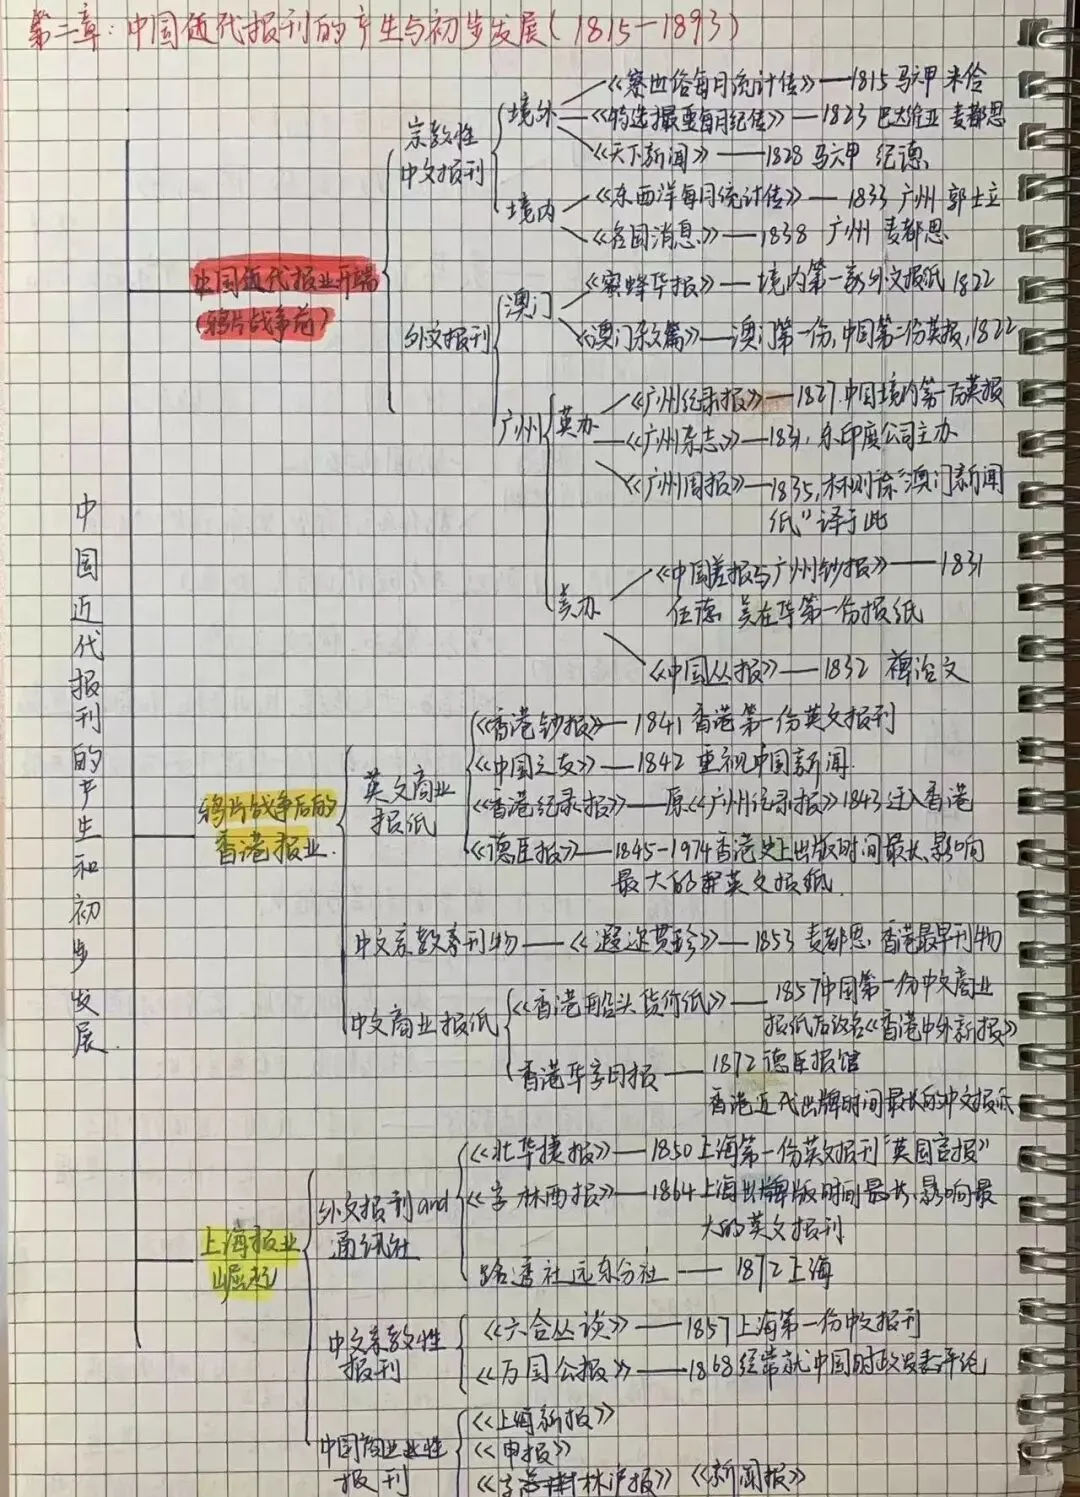 第二章：中国近代报刊的产生与初步发展（1815－1893）
中国近代报刊的产生和初步发展
中国近代报业开端
（鸦片战争前）
宗教性
中文报刊
境外
《察世俗每月统计传》——1815 马六甲 米伶
《特选撮要每月纪传》——1823 巴达维亚 麦都思
《天下新闻》——1828 马六甲 纪德
境内
《东西洋每月统计传》——1833 广州 郭士立
《各国消息》——1838 广州 麦都思
外文报刊
澳门
《蜜蜂华报》——境内第一家外文报纸 1822
《澳门杂文篇》——澳门第一份，中国第二份英报，1822
广州
英办
《广州纪录报》——1827.中国境内第一份英报
《广州杂志》——1831，东印度公司主办
《广州周报》——1835，林则徐“澳门新闻
纸”译于此
美办
《中国差报与广州钞报》——1831
伍德 美在华第一份报纸
《中国丛报》——1832 裨治文
鸦片战争后的
香港报业
英文商业
报纸
《香港钞报》——1841 香港第一份英文报刊
《中国之友》——1842 重视中国新闻
《香港纪录报》——原《广州纪录报》1843迁入香港
《德臣报》——1845-1974香港史上出版时间最长、影响
最大的英文报纸
中文宗教刊物——《遐迩贯珍》——1853 麦都思 香港最早刊物
中文商业报纸
《香港船头货价纸》——1857中国第一份中文商业
报纸后改名《香港中外新报》
香港华字日报——1872德臣报馆
香港近代出版时间最长的中文报纸
上海报业
崛起
外文报刊and
通讯社
《北华捷报》——1850上海第一份英文报刊“英国官报”
《字林西报》——1864上海出版时间最长、影响最
大的英文报刊
路透社远东分社——1872上海
中文宗教性
报刊
《六合丛谈》——1857上海第一份中文报刊
《万国公报》——1868经常就中国时政发表评论
中国商业性
报刊
《上海新报》
《申报》
《字林沪报》《新闻报》